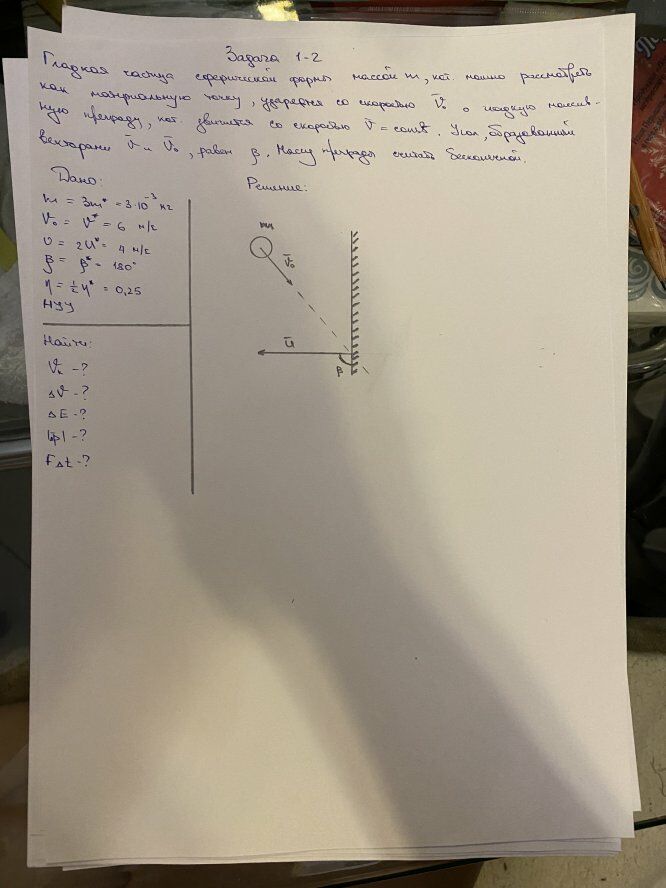 Задача 1-2
Гладкая частица сферической формы массой m, кот. можно рассмотреть
как материальную точку, ударяется со скоростью V̄₀ о гладкую массив-
ную преграду, кот. движется со скоростью V̄ = const. Угол, образованный
векторами V̄ и V̄₀, равен β. Массу преграды считать бесконечной.
Дано:
m = 3m* = 3·10⁻³ кг
V₀ = V* = 6 м/с
U = 2U* = 4 м/с
β = β* = 180°
η = ½η* = 0,25
НУУ
Найти:
Vк -?
ΔV -?
ΔE -?
|Δp| -?
FΔt -?
Решение:
m
V̄₀
ū
β